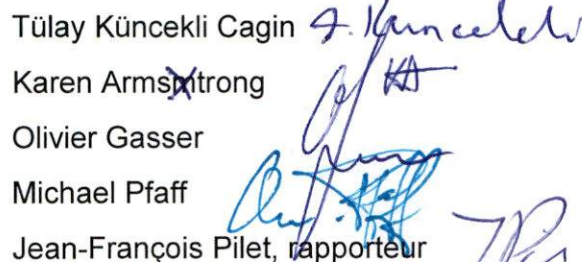 Tülay Küncekli Cagin T. Küncekli
Karen Armsmtrong KA
Olivier Gasser
Michael Pfaff
Jean-François Pilet, rapporteur